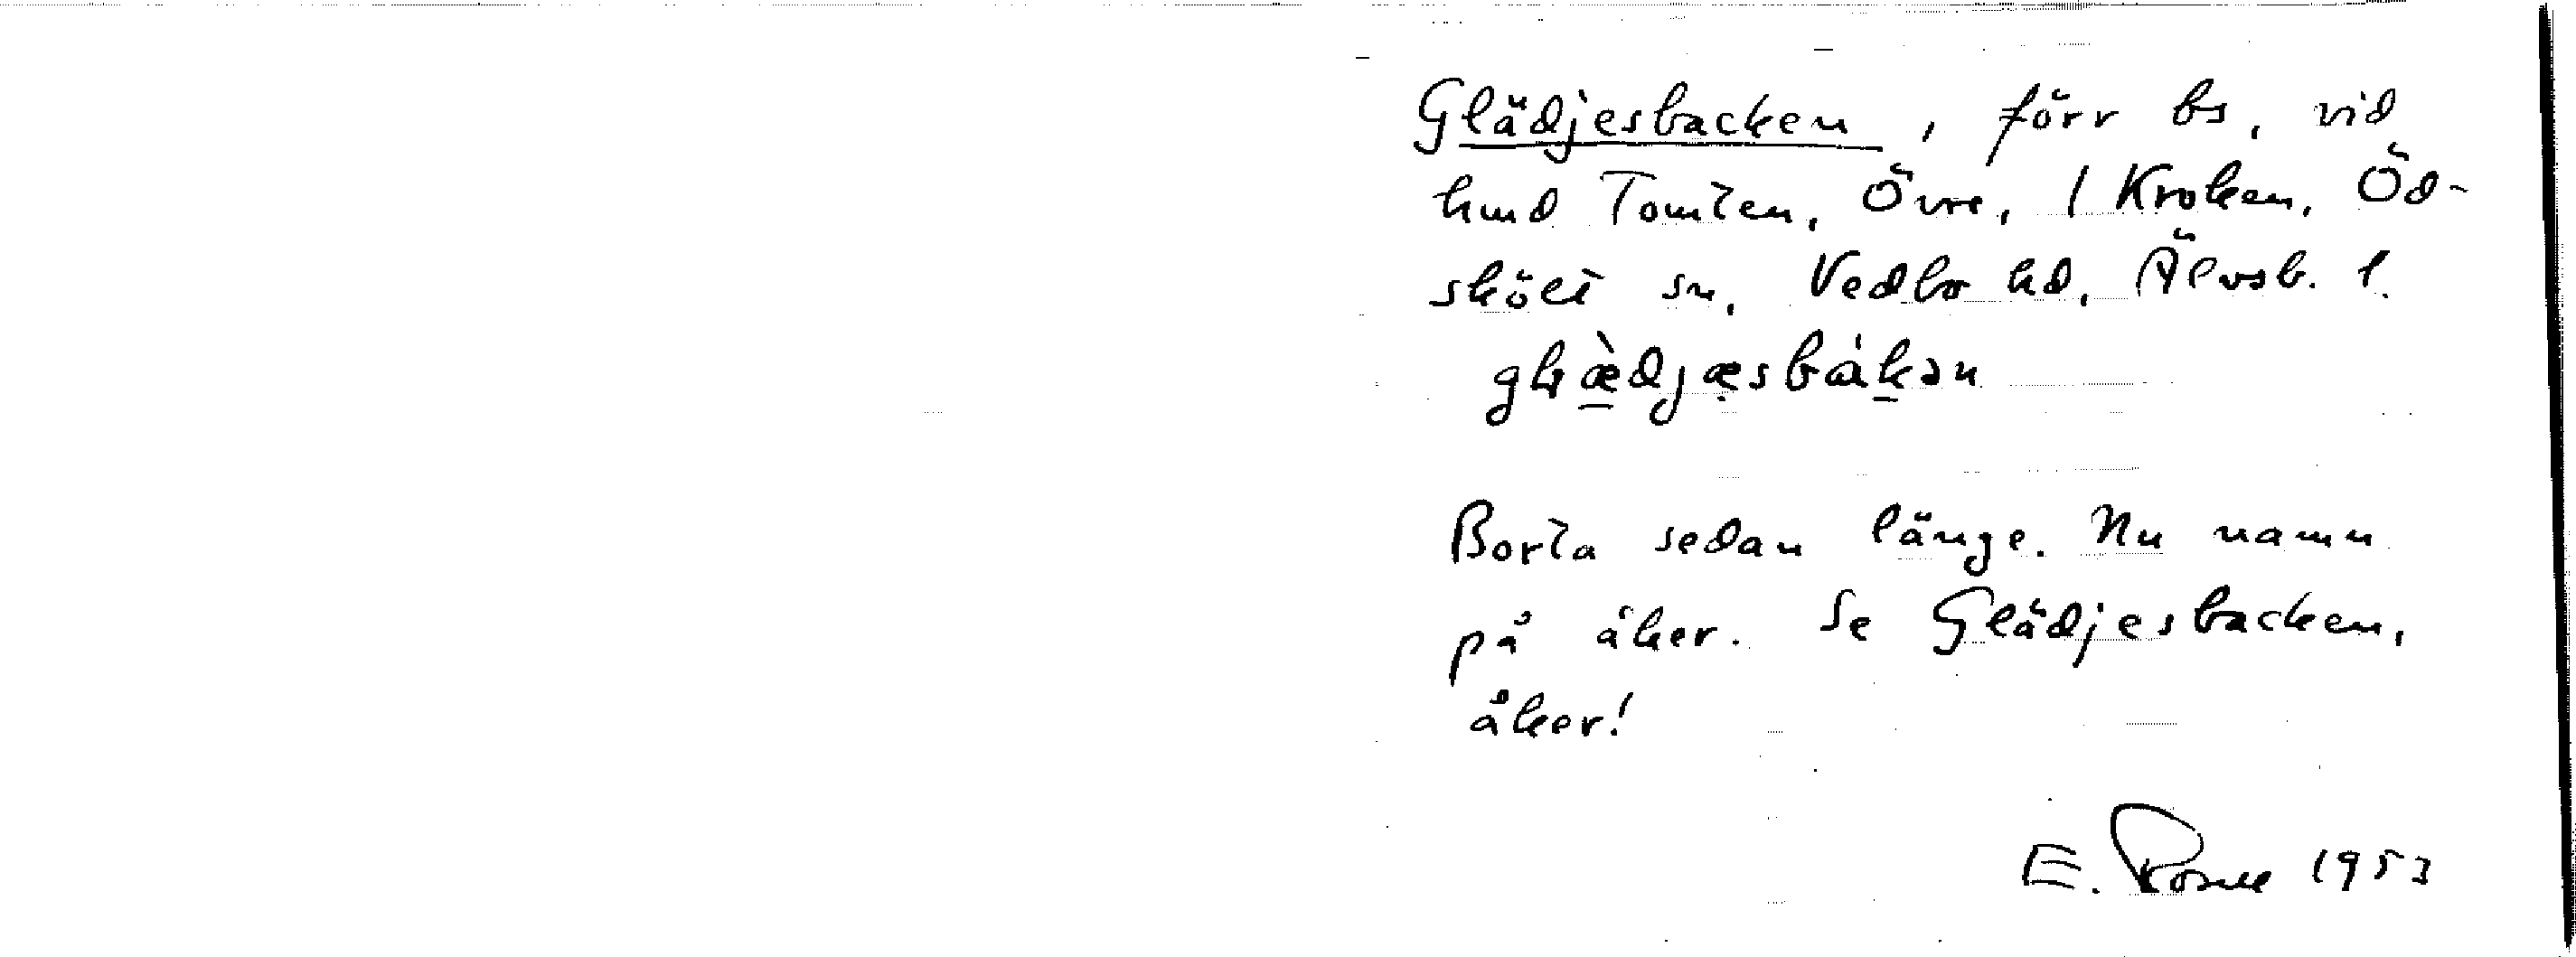 Glädjesbacken, förr bs, vid
hmd Tomten, Övre, / Kroken, Öd-
skölt sn, Vedbo hd, Älvsb. l.
Borta sedan länge. Nu namn
på åker. Se Glädjesbacken,
åker!
E. 1953